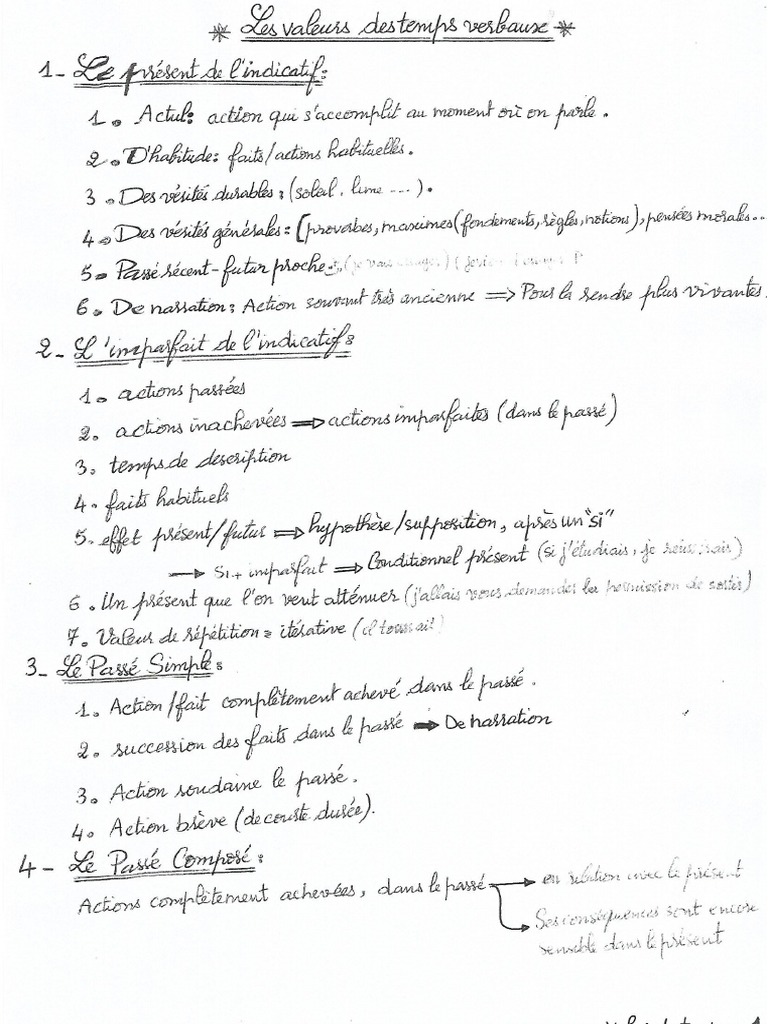 * Les valeurs des temps verbaux *
1- Le présent de l'indicatif:
1. Actul: action qui s'accomplit au moment où on parle.
2. D'habitude: faits/actions habituelles.
3. Des vérités durables: (soleil, lune ...).
4. Des vérités générales: (proverbes, maximes (fondements, règles, notions), pensées morales...
5. Passé récent-futur proche: (je vais
6. De narration: Action souvant très ancienne ⇒ Pour la rendre plus vivantes.
2- L'imparfait de l'indicatif:
1. actions passées
2. actions inachevées ⇒ actions imparfaites (dans le passé)
3. temps de description
4. faits habituels
5. effet présent/futur ⇒ hypothèse/supposition, après un "si"
→ Si + imparfait ⇒ Conditionnel présent (si j'étudiais, je réussirais)
6. Un présent que l'on veut atténuer (j'allais vous demander la permission de sortir)
7. Valeur de répétition = itérative (il toussait)
3- Le Passé Simple:
1. Action/fait complètement achevé dans le passé.
2. succession des faits dans le passé ⇒ De narration
3. Action soudaine le passé.
4. Action brève (de courte durée).
4- Le Passé Composé:
Actions complètement achevées, dans le passé → en relation avec le présent
→ Ses conséquences sont encore
sensible dans le présent